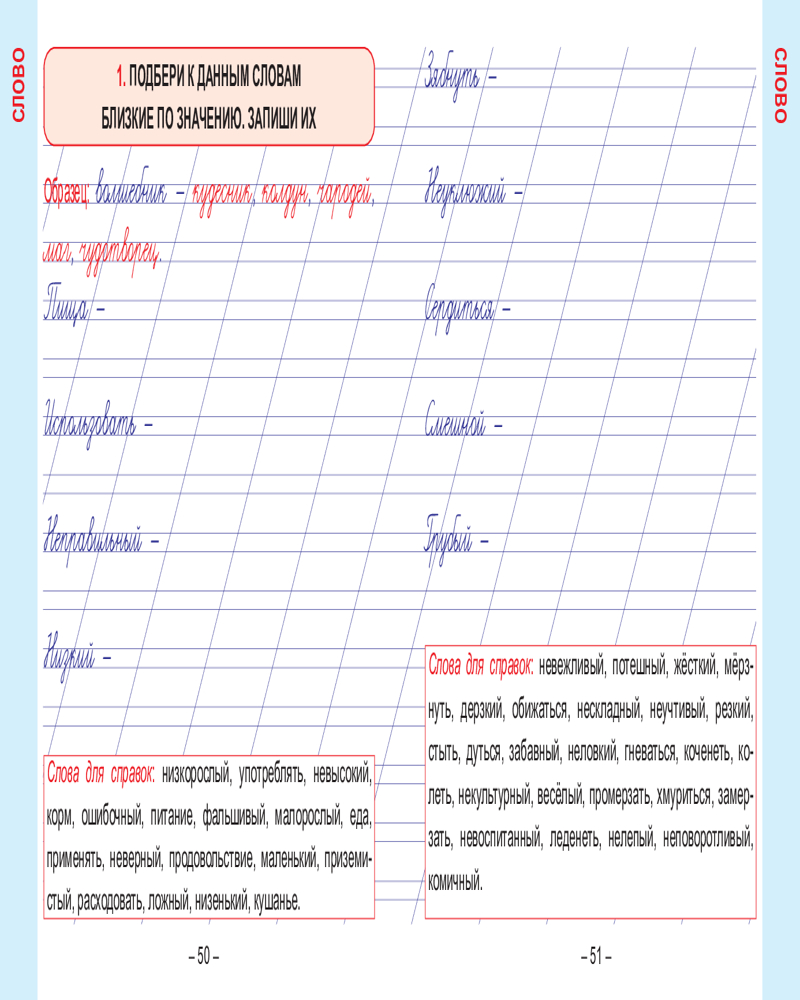 СЛОВО
1. ПОДБЕРИ К ДАННЫМ СЛОВАМ
БЛИЗКИЕ ПО ЗНАЧЕНИЮ. ЗАПИШИ ИХ
Образец: волшебник – кудесник, колдун, чародей,
маг, чудотворец.
Пища –
Использовать –
Неправильный –
Низкий –
Слова для справок: низкорослый, употреблять, невысокий,
корм, ошибочный, питание, фальшивый, малорослый, еда,
применять, неверный, продовольствие, маленький, приземи-
стый, расходовать, ложный, низенький, кушанье.
– 50 –
Зябнуть –
Неуклюжий –
Сердиться –
Смешной –
Грубый –
Слова для справок: невежливый, потешный, жёсткий, мёрз-
нуть, дерзкий, обижаться, нескладный, неучтивый, резкий,
стыть, дуться, забавный, неловкий, гневаться, коченеть, ко-
леть, некультурный, весёлый, промерзать, хмуриться, замер-
зать, невоспитанный, леденеть, нелепый, неповоротливый,
комичный.
– 51 –
СЛОВО